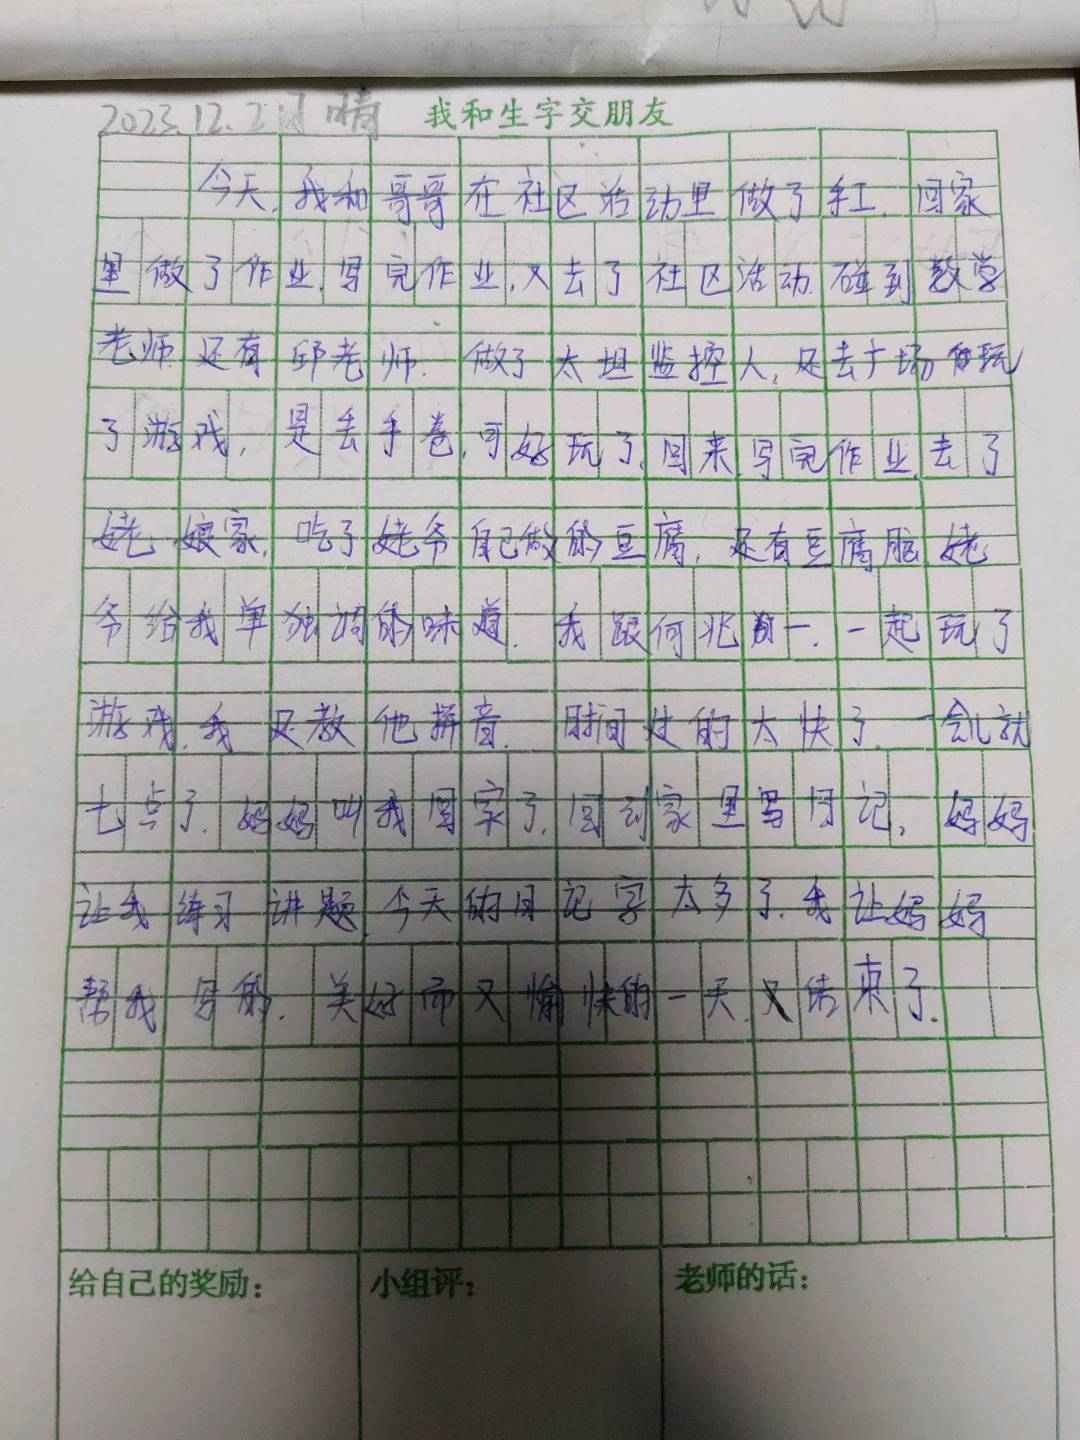 2023.12.2日 晴 我和生字交朋友
今天,我和哥哥在社区活动里做了手工.回家
里做了作业.写完作业,又去了社区活动.碰到数学
老师.还有邱老师.做了太坦监控人,还去广场的玩
了游戏,是丢手卷.可好玩了.回来写完作业.去了
姥娘家,吃了姥爷自己做的豆腐,还有豆腐脑.姥
爷给我单独调的味道.我跟何兆一.一起玩了
游戏.我还教他拼音.时间过的太快了.一会儿就
七点了.妈妈叫我回家了.回到家里写日记,妈妈
让我练习讲题.今天的日记字太多了.我让妈妈
帮我写的.美好而又愉快的一天.又结束了.
给自己的奖励: 小组评: 老师的话: